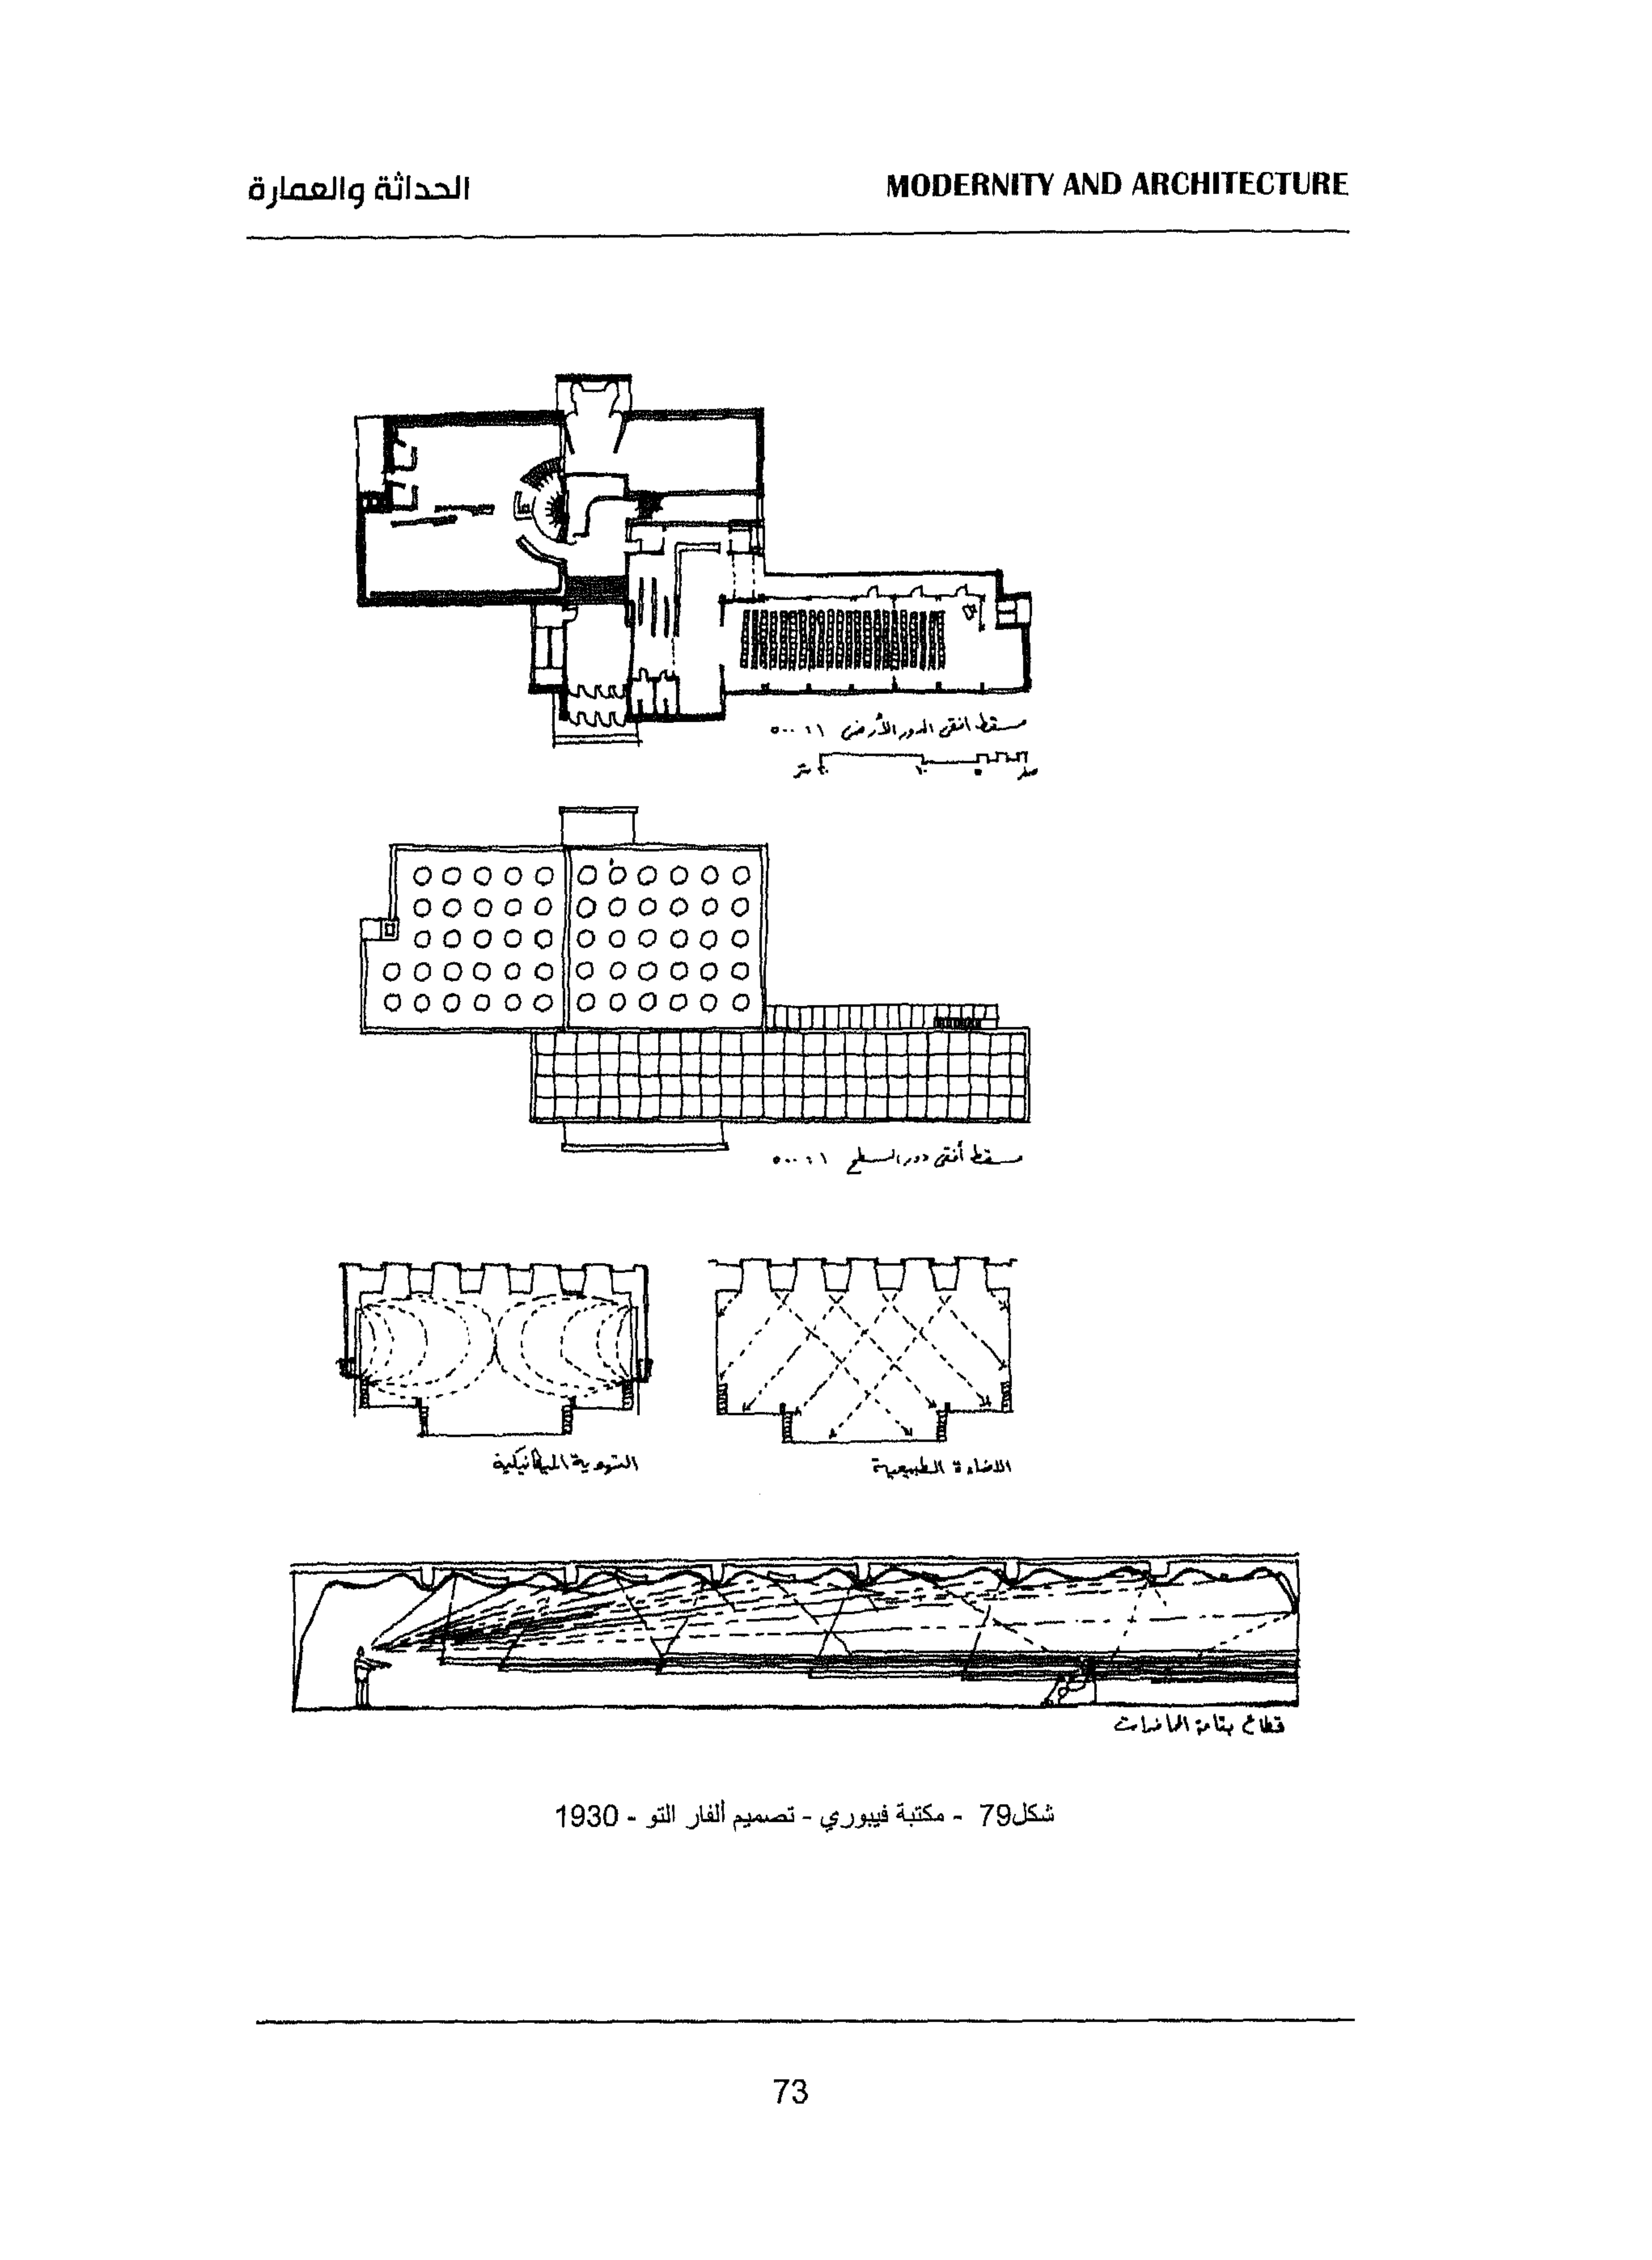 الحداثة والعمارة
MODERNITY AND ARCHITECTURE
مسقط افقى الدور الأرضى ١ : ٥٠٠
صفر ٥ ١٠ ٢٠ متر
مسقط أفقى دور السطح ١ : ٥٠٠
التهوية الميكانيكية
الاضاءة الطبيعية
قطاع بقاعة المحاضرات
شكل79 - مكتبة فيبوري - تصميم ألفار التو - 1930
73